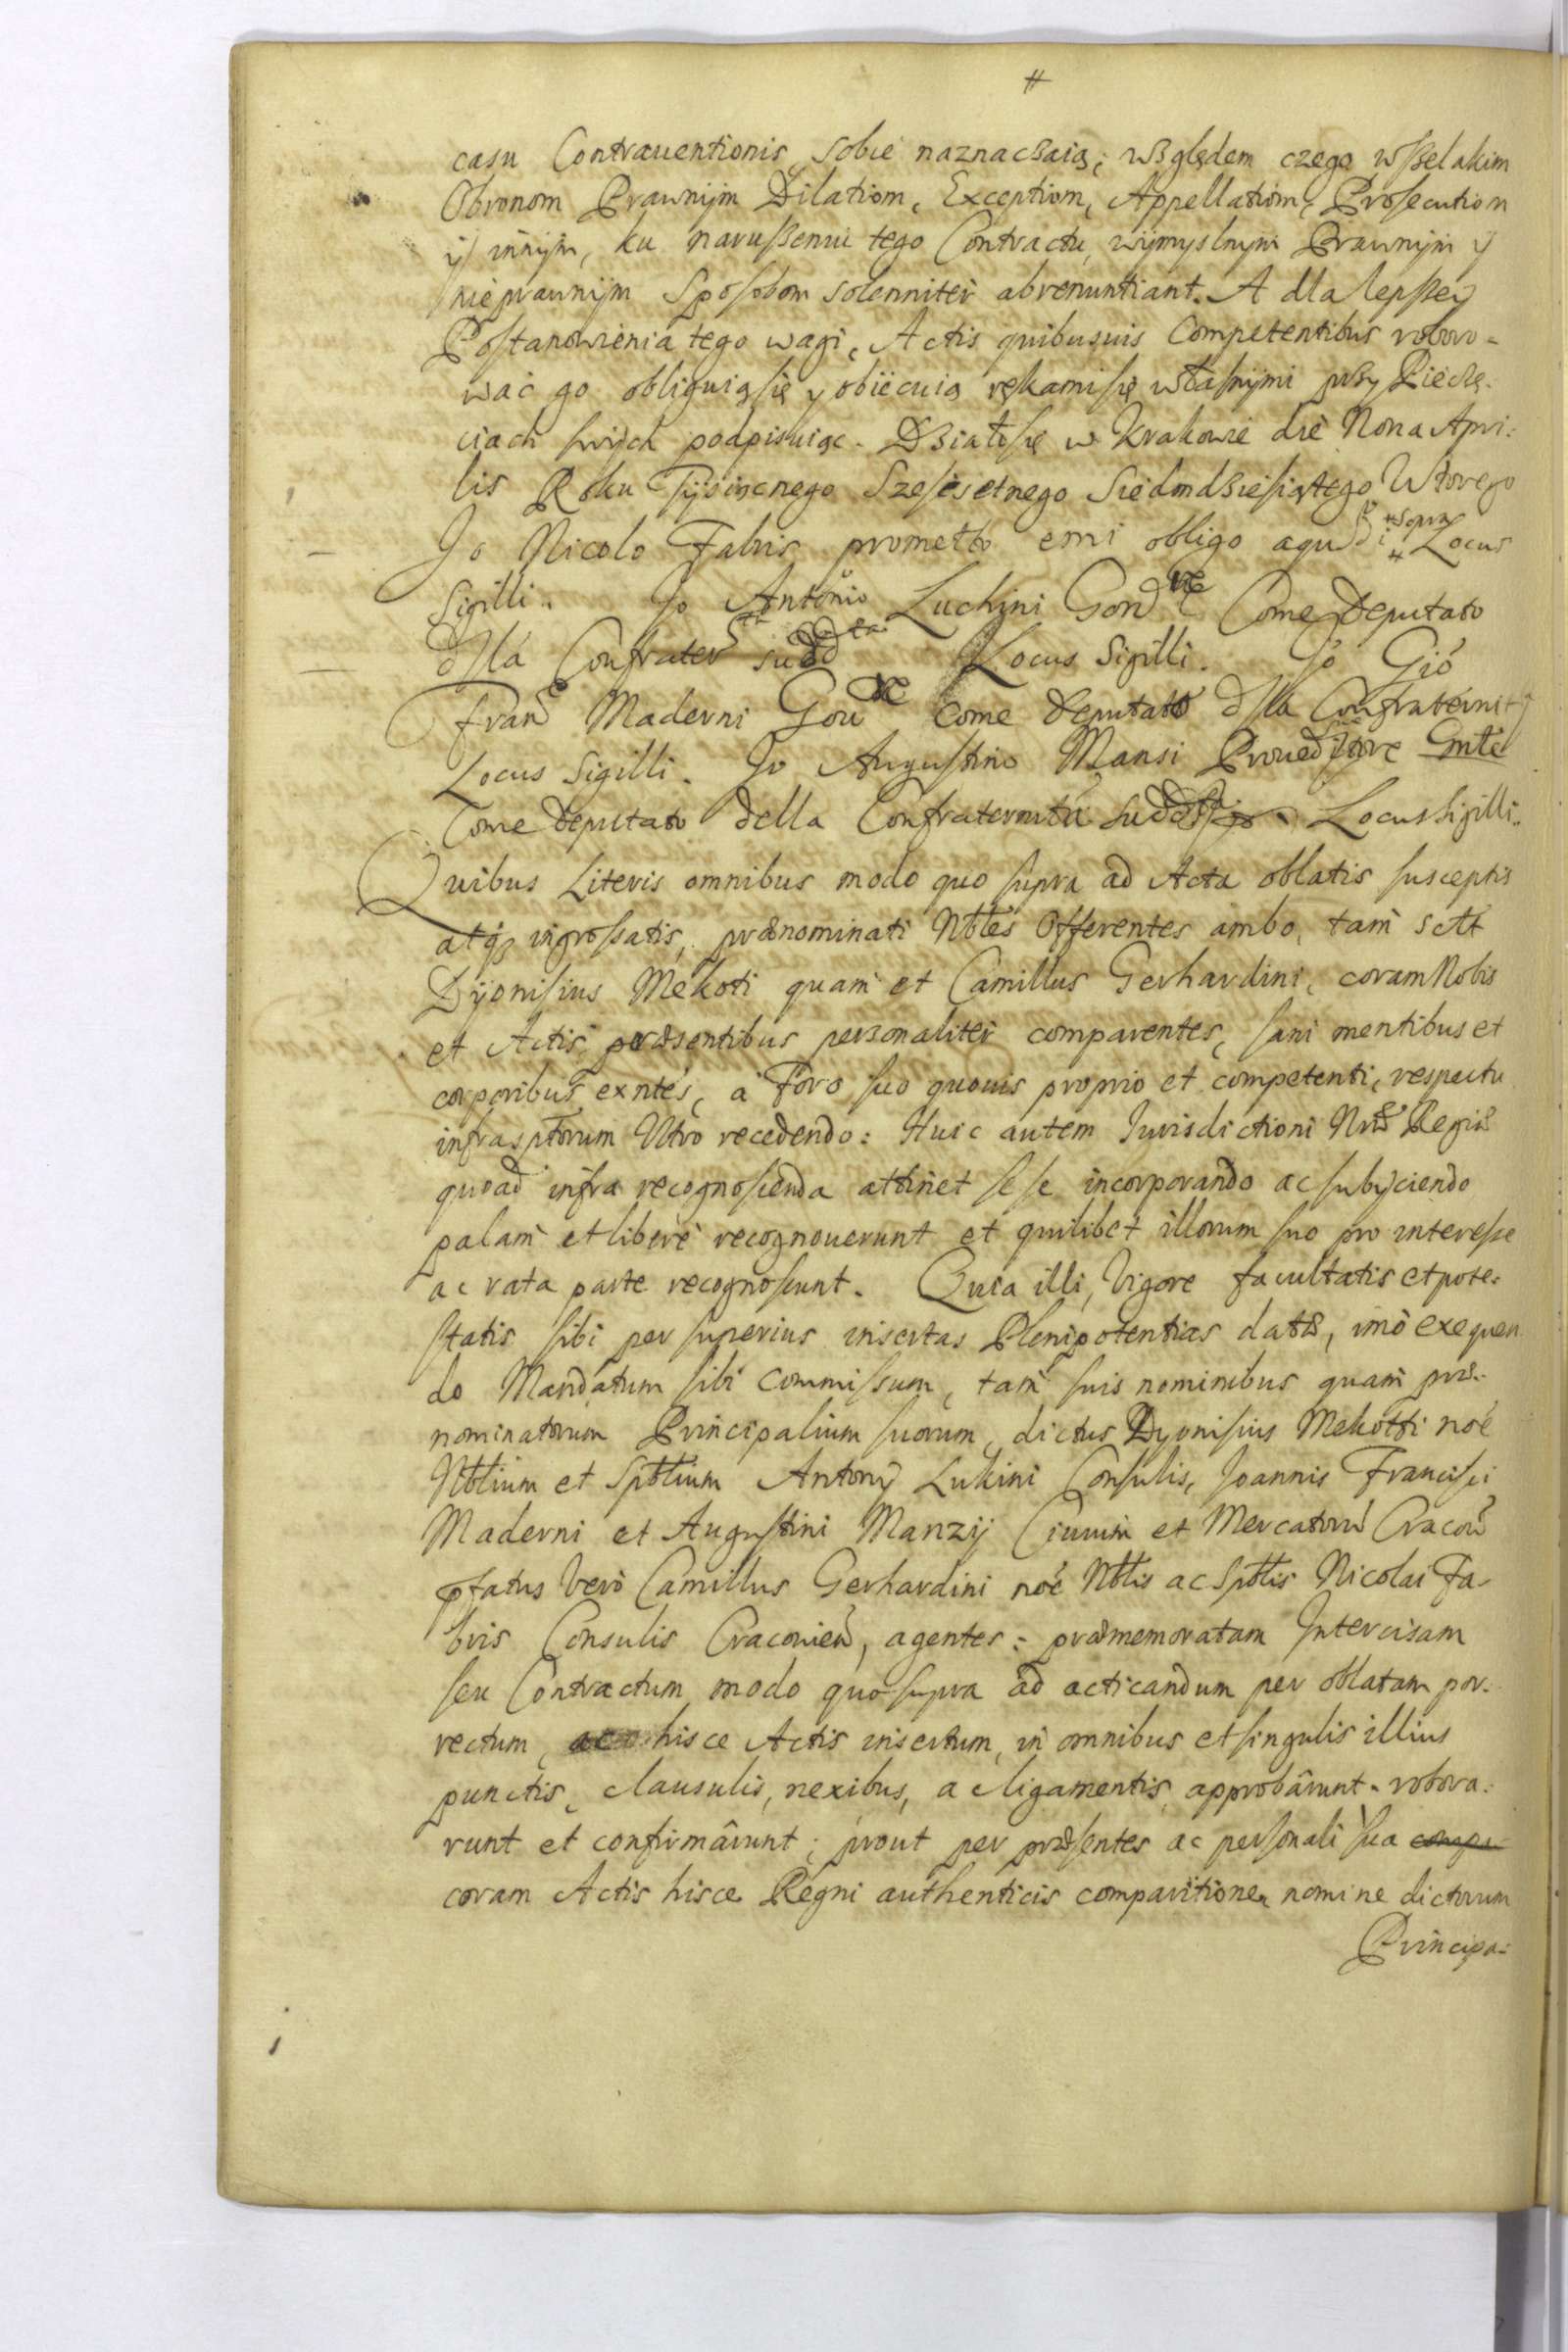 #
casu Contrauentionis sobie naznaczaią; względem czego wszelakim
Obronom Prawnÿm Dilatiom, Exceptiom, Appellatiom, Prosecution
ÿ innÿm, ku naruszeniu tego Contractu, wÿmyslnym Prawnÿm ÿ
nieprawnÿm Sposobom solenniter abrenuntiant. A dla lepszeÿ
Postanowienia tego wagi, Actis quibusuis Competentibus roboro-
wać go obliguią się y obiecuią rękami się własnÿmi przy Pieczę-
ciach swÿch podpisuiąc. Działo się w Krakowie die Nona Apri:
lis Roku Tÿsiącnego Szescsetnego Siedmdziesiątego Wtorego
Jo Nicolo Fabris prometto e mi obligo aqu di sopra Locus
Sigilli. Jo Antonio Luchini Gonre Come deputato
dlla Confraterta sudta Locus Sigilli. Jo Gio
Frano Maderni Goure Come deputato dlla Confraternitá
Locus Sigilli. Jo Augustino Mansi Proueditore Gnte
Come deputato della Confraternitá sudda Locus Sigilli.
Quibus Literis omnibus modo quo supra ad Acta oblatis susceptis
atq3 ingrossatis, prænominati Nbles Offerentes ambo, tam sclt
Dÿonisius Mekoti quam et Camillus Gerhardini, coram Nobis
et Actis præsentibus personaliter comparentes, sani mentibus et
corporibus exntes, a Foro suo quouis proprio et competenti, respectu
infrasptorum Ultro recedendo: Huic autem Jurisdictioni Nræ Regiæ
quoad infra recognoscenda attinet sese incorporando ac subÿciendo
palam et liberè recognouerunt et quilibet illorum suo pro interesse
ac rata parte recognoscunt. Quia illi, Vigore facultatis et pote-
statis sibi per superius insertas Plenipotentias datæ, imò exequen
do Mandatum sibi commissum, tam suis nominibus quam præ-
nominatorum Principalium suorum, dictus Dyonisius Mekotti noe
Nblium et Spblium Antonÿ Lukini Consulis, Joannis Francisci
Maderni et Augustini Manzij Ciuium et Mercatorum Cracou
pfatus Verò Camillus Gerhardini noe Nblis ac Spblis Nicolai Fa-
bris Consulis Cracouien, agentes: præmemoratam Intercisam
seu Contractum modo quo supra ad acticandum per oblatam por-
rectum, ac hisce Actis insertum, in omnibus et singulis illius
punctis, clausulis, nexibus, ac ligamentis approbârunt, robora-
runt et confirmârunt; prout per præsentes ac personali sua compa-
coram Actis hisce Regni authenticis comparitione, nomine dictorum
Principa-